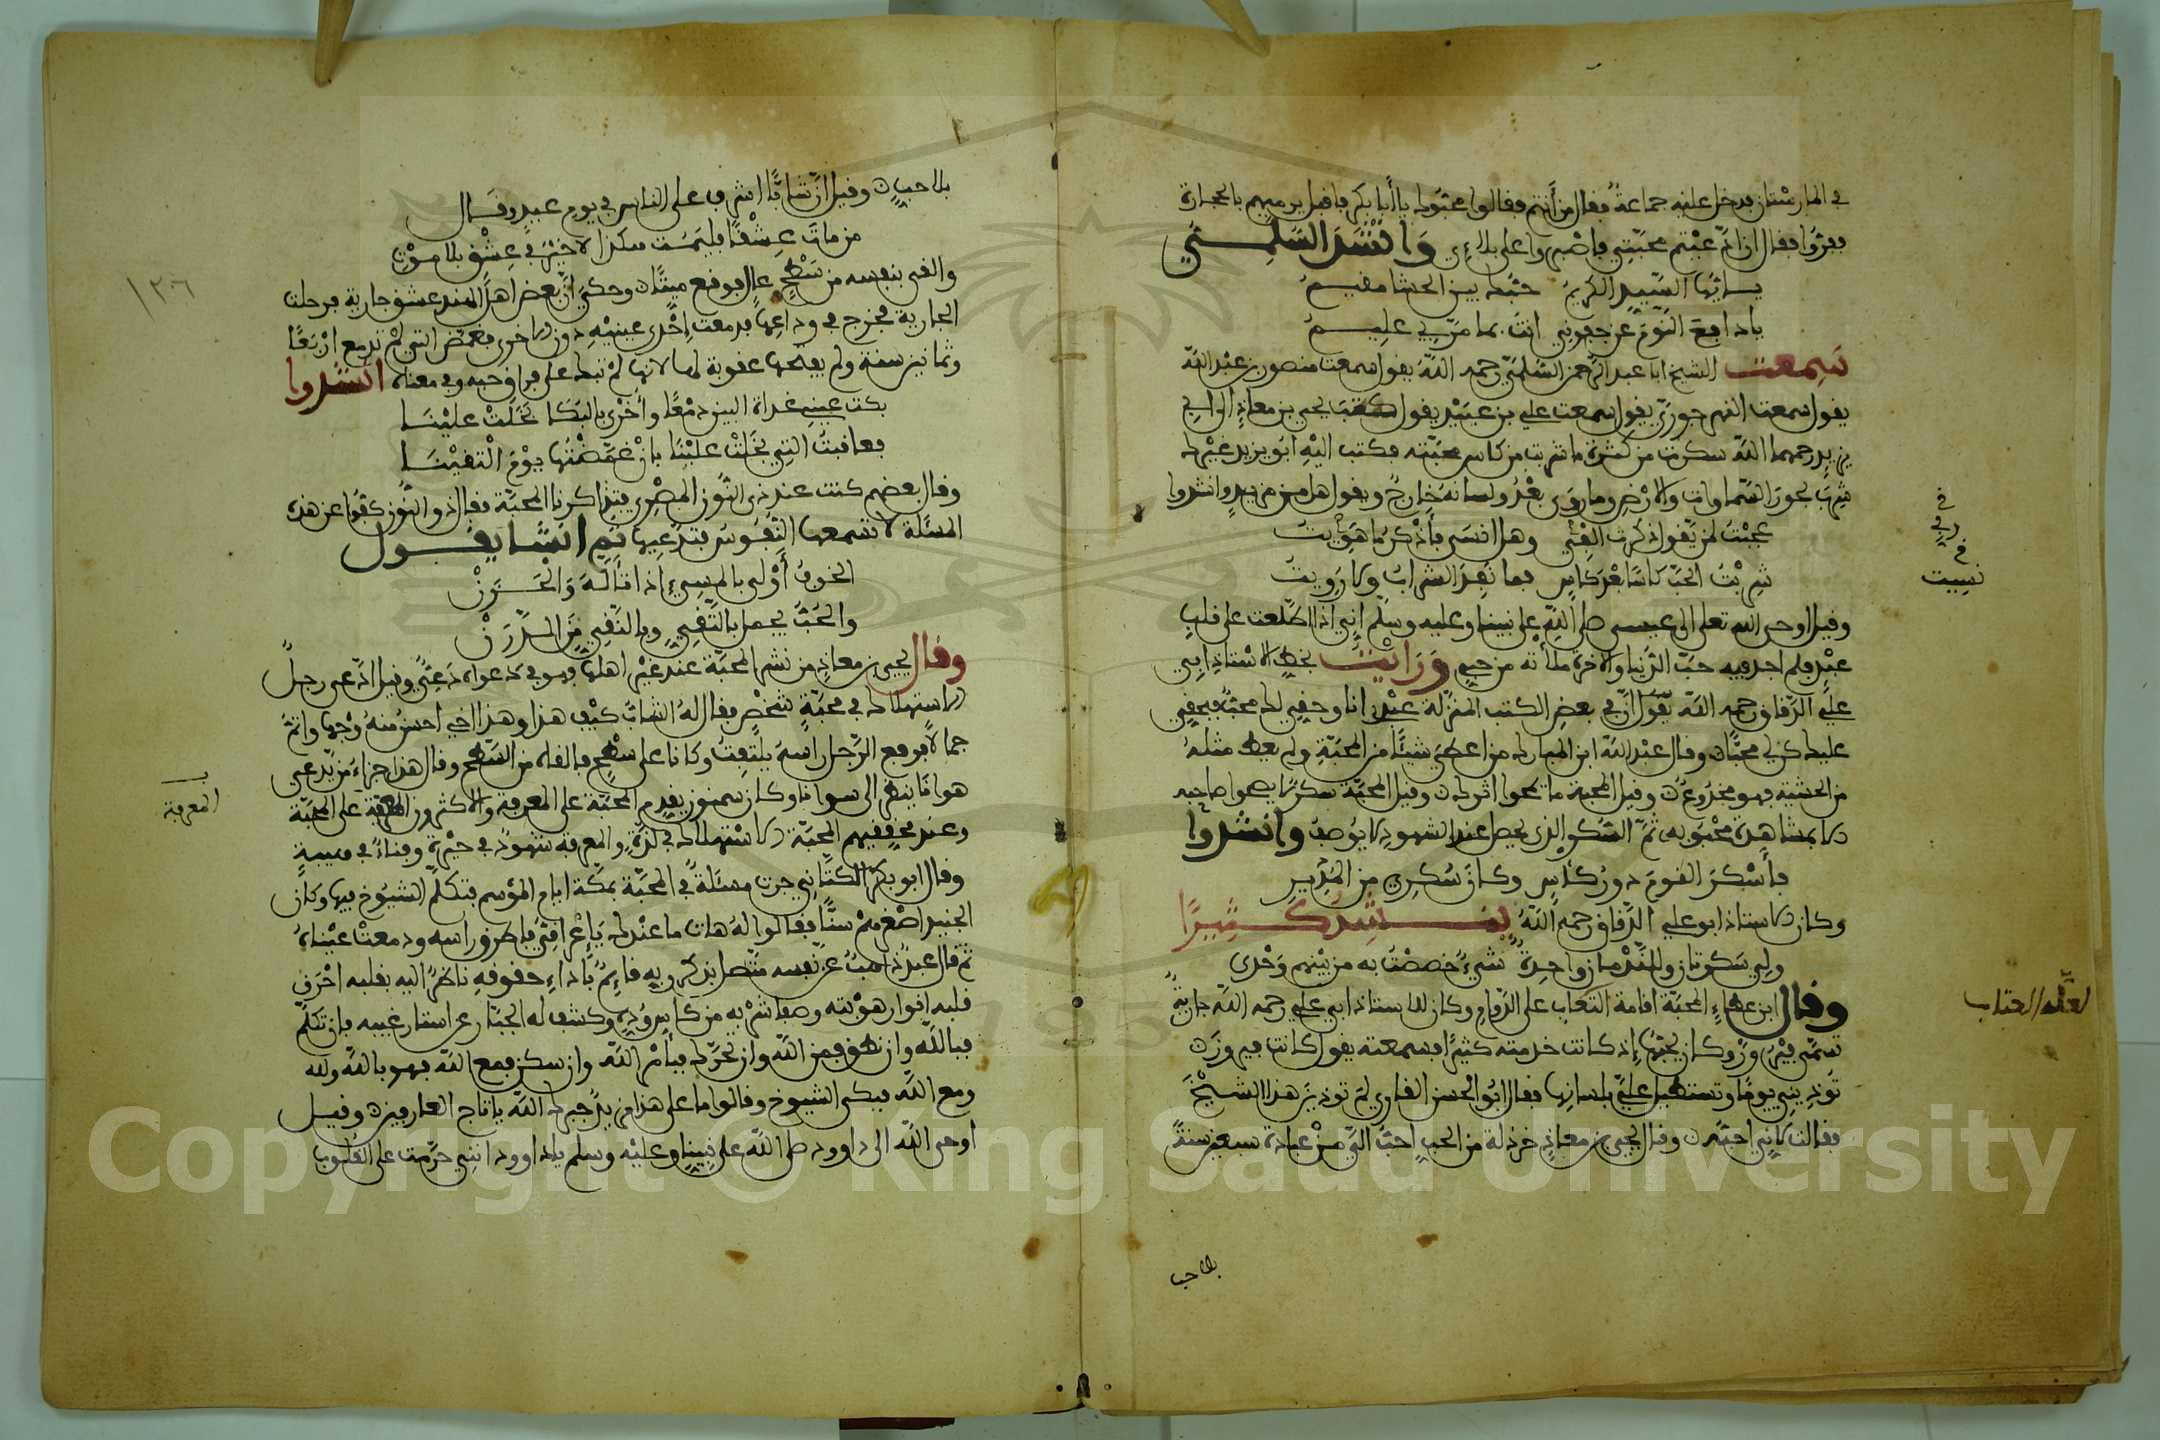 في المارستان فدخل عليه جماعة فقال من أنتم فقالوا محبوك يا أبا بكر فاقبل يرميهم بالحجارة
ففروا فقال ان ادّعيتم محبّتي فاصبروا على بلائي وَانْشَدَ الشبلـــي
يـا ايّها السّيّد الكريمُ حبّك بين الحشا مقيـمُ
يا دافع النّوم عن جفوني انت بما مرّ بي عليـمُ
سَمِعت الشيخ ابا عبد الرحمن السّلمي رحمه الله يقول سمعت منصور بن عبد الله
يقول سمعت النهرجوري يقول سمعت علي بن عبيد يقول كتب يحيى بن معاذ الى ابي
يزيد رحمهما الله سكرت من كثرة ما شربت من كاس محبّته فكتب اليه ابو يزيد غيرك
شرب بحور السّماوات والارض وما روي بعد ولسانه خارج ويقول هل من مزيد وانشدوا
عجبْتُ لمن يقول ذكرت الفي وهل انسى فأذكر ما هويت
شربْتُ الحبّ كاسا بعد كاس فما نفد الشراب ولا رويت
وقيل اوحى الله تعلى الى عيسى صلى الله على نبينا وعليه وسلّم إني اذا اطّلعت على قلب
عبْد فلم اجد فيه حبّ الدّنيا والاخرة ملأته من حبي وَرَايْت بخط الاستاذ ابي
علي الدّقاق رحمه الله يقول ان في بعض الكتب المنزلة عبْدي انا وحقي لك محبّ فبحقي
عليك كن لي محبّا وقال عبد الله ابن المبارك من اعطي شيئا من المحبّة ولم يعط مثله
من الخشية فهو مخدوع وقيل المحبة ما يمحوا اثرك وقيل المحبّة سكر لا يصحوا صاحبه
الا بمشاهدة محْبوبه ثمّ السّكر الذي يحصل عند الشهود لا يوصف وانشدوا
فأسْكر القومَ دورُ كأس وكان سُكري من المُدير
وكان الاستاذ ابو علي الدّقاق رحمه الله يـنـشـد كـثـيـرًا
ولي سَكرتان وللنّدمان واحدةٌ شيءٌ خصصْتُ به من بيْنهم وَحْدي
وقال ابن عطاء المحبّة اقامة العتاب على الدّوام وكان للاستاذ ابي علي رحمه الله جارية
تسمّى فيروز وكان يحبّها إذ كانت خدمته كثيرًا فسمعته يقول كانت فيروز
تُوذيني يومًا وتستطيل عليّ بلسانها فقال ابُو الحسن القاري لمَ توذين هذا الشيْخَ
فقالت لاني احبّه وقال يحيى بن معاذ خردلة من الحب احبّ اليّ من عبادة سبعين سنة
في
رفي
خ
نسيت
لعلّه العتاب
بلا حب
بلا حبّ وقيل انّ شابّا اشرف على الناس في يوم عيد وقـال
من مات عشقًا فليمت هكذا لا خيْرَ في عِشْقٍ بلا موْت
والقى بنفسه من سَطْح عال فوقع ميّتًا وحكي انّ بعض اهل الهند عشق جارية فرحلت
الجارية فخرج في وداعها فدمعت إحْدى عينيْه دون الاخرى فغمّض التي لمْ تدمع ارْبَعًا
وثمانين سنة ولم يفتحها عقوبة لها لانها لمْ تبك على فراق حبه وفي معناه انشدوا
بكت عيني غداة البين دمْعًا وأخرى بالبكا بخلَتْ عليْنَـا
فعاقبتُ التي بخلت عليْنا بانْ غمّضْتُها يوْمَ الْتقيْنـا
وقال بعضهم كنت عند ذي النّون المصْري فتذاكرنا المحبّة فقال ذو النّون كفّوا عن هذه
المسئلة لا تسمعها النّفوس فتدّعيها ثم انشا يقـــول
الخوفُ أوْلى بالمسيءِ اذا تألّه وَالْحَـزَنْ
والحُبّ يجمل بالتّقي وبالنّقي منَ الـدَّرَنْ
وقال يحيى بن معاذ من نشر المحبّة عند غيْر اهلها فهو في دعواه دَعِيّ وقيل ادّعى رجلٌ
الاستهلاك في محبّة شخْص فقال لهُ الشابّ كيْف هذا وهذا اخي احسنُ منهُ وجْها واتمّ
جمالا فرفع الرّجل راسه يلتفتُ وكانا على سطْح فالقاه من السّطح وقال هذا جزاء من يدّعي
هوانا ينظر الى سوانا وكان سمنون يقدم المحبّة على المعرفة والاكثرون المعرفة على المحبّة
وعند محققيهم المحبّة الاستهلاك في لذّة والمعرفة شهودٌ في حيْرة وفناءٌ في هيبةٍ
وقال ابو بكر الكتّاني جرت مسئلةٌ في المحبّة بمكّة ايام المؤسم فتكلّم الشيوخ فيها وكان
الجنيد اصْغرهمْ سنّا فقالوا لهُ هات ما عندك يا عراقيّ فاطرق راسه ودمعتْ عيْناهُ
ثم قال عبد ذاهبٌ عن نفسه متّصل بذكر ربه قائم بأداء حقوقه ناظرٌ اليه بقلبه احْرق
قلبه انوار هوّيته وصفا شرْبه من كأس ودّه وكشف له الجبّار عن استار غيبه فان تكلّم
فبالله وان نطق فمن الله وان تحرّك فبأمْر الله وان سكن فمع الله فهو بالله ولله
ومع الله فبكى الشيوخ وقالوا ما على هذا من يدٍ جبرك الله يا تاج العارفين وقيـل
اوحى الله الى داوود صلى الله على نبينا وعليْه وسلم يا داوود انّي حرّمت على القلوب
١٣٦
المعرفة
Copyright © King Saud University